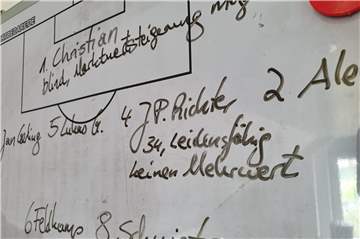 1. Christian
blind, Marktwertsteigerung mög
2 Ale
4 J.P. Richter
34, Leidensfähig
keinen Mehrwert
5 Lukas G.
6 Feldkamp
8.